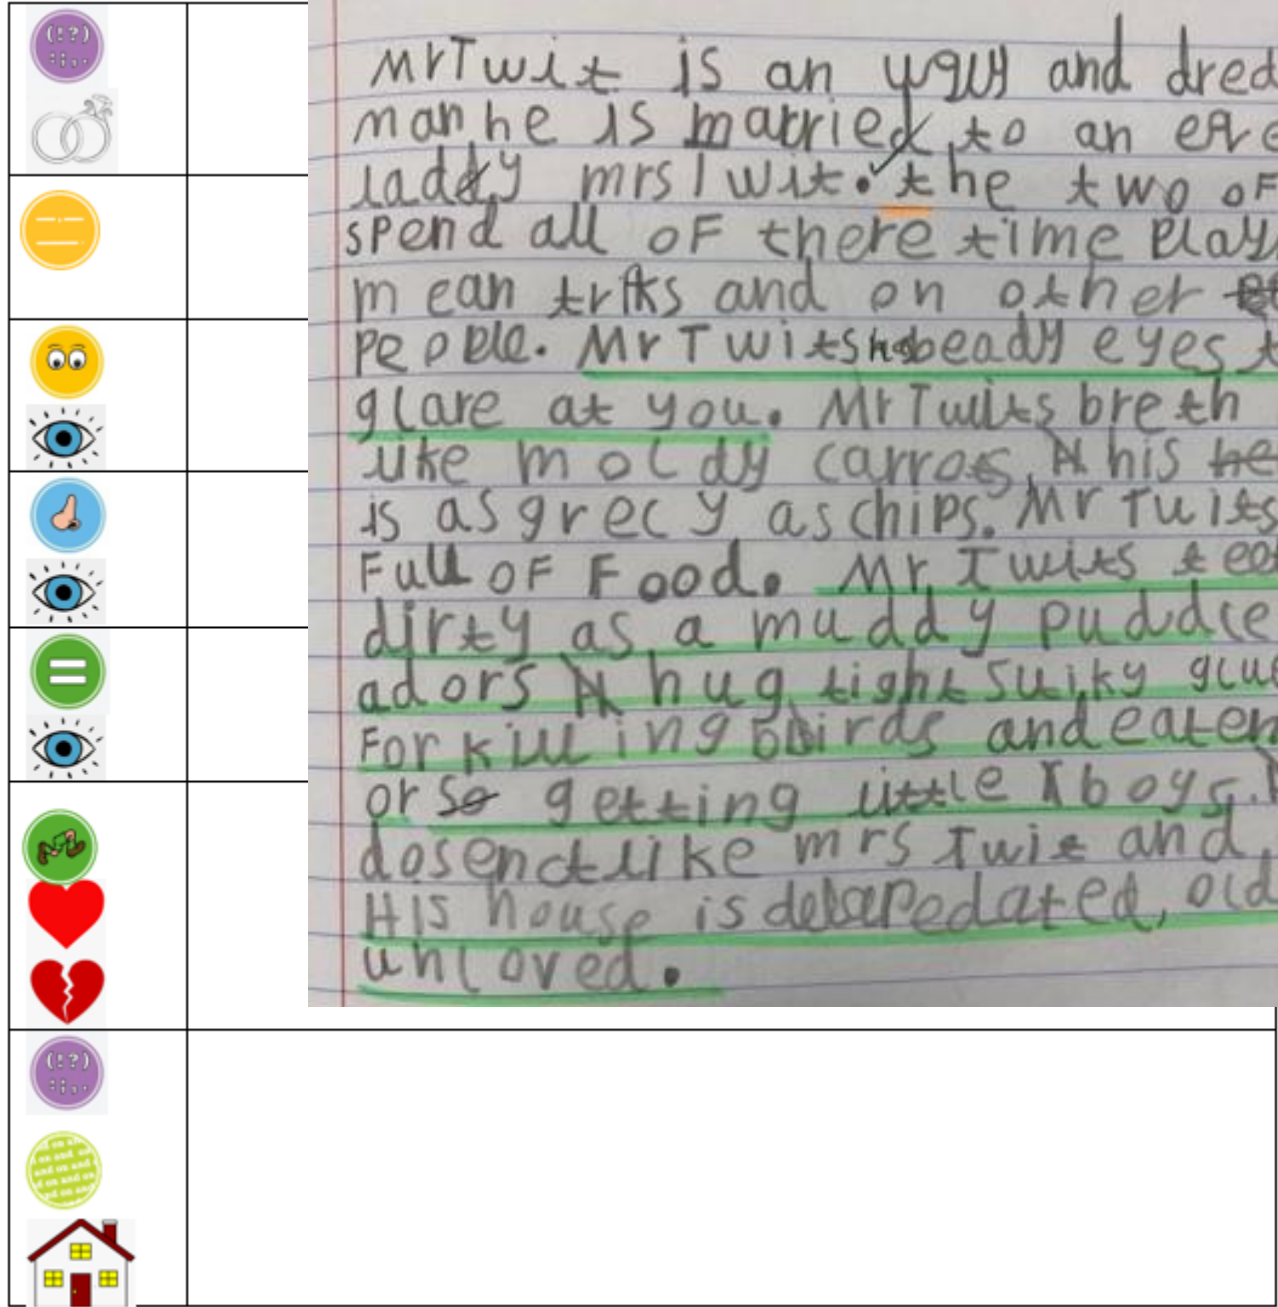 (!?)
MrTwit is an ugly and dred
man he is married to an
laddy mrs Twit. the two of
spend all of there time play
mean triks and on other
people. Mr Twits has beady eyes t
glare at you. Mr Twits breth
like moldy carrots his
is as grecy as chips. Mr Twits
Full of Food. Mr Twits teet
dirty as a muddy puddle
adors hug tight stiky glue
For killing birds and eaten
or getting little boys.
dosenct like mrs Twit and
His house is delapedated, old
unloved.
(!?)